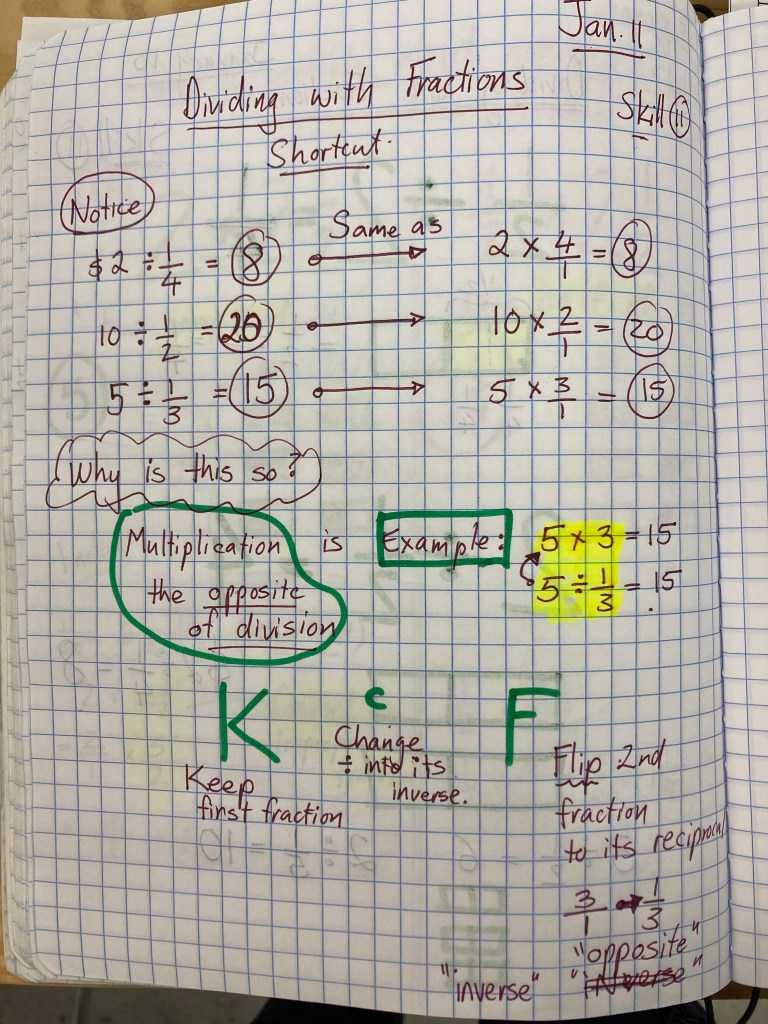 Jan. 11
Dividing with Fractions
Skill 11
Shortcut.
Notice
Same as
$2 ÷ 1/4 = 8 → 2 × 4/1 = 8
10 ÷ 1/2 = 20 → 10 × 2/1 = 20
5 ÷ 1/3 = 15 → 5 × 3/1 = 15
Why is this so?
Multiplication is
the opposite
of division
Example:
5 × 3 = 15
5 ÷ 1/3 = 15
K C F
Keep
first fraction
Change
÷ into its
inverse.
Flip 2nd
fraction
to its reciprocal
3/1 → 1/3
"opposite"
"inverse" "inverse"